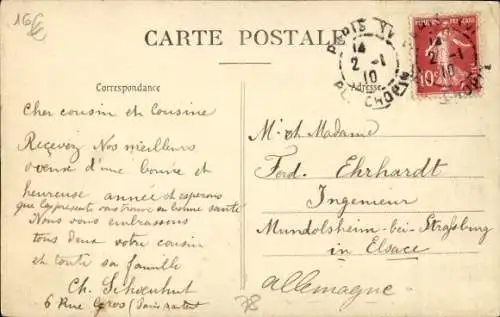 16
CARTE POSTALE
PARIS XVI
14
2 - 1
10
PL. CHOPIN
10
Correspondance
Adresse
Cher cousin et Cousine
Recevez Nos meilleurs
d'une bonne et
heureuse année et esperons
que la presente vous trouve en bonne santé
Nous vous embrassons
tous deux votre cousin
et toute sa famille
Ch. Schoenhut
6 Rue Gros (Paris
M. et Madame
Ferd. Ehrhardt
Ingenieur
Mundolsheim-bei-Straßburg
in Elsace
Allemagne
78